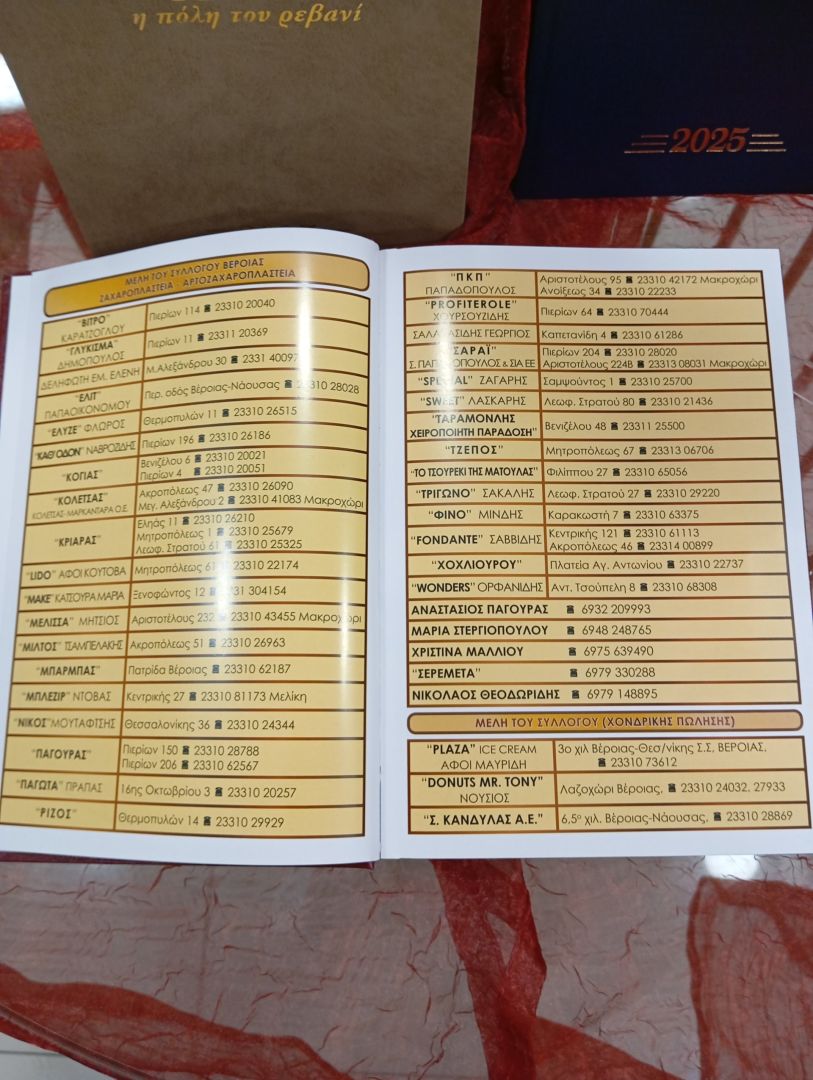 η πόλη του ρεβανί
2025
ΜΕΛΗ ΤΟΥ ΣΥΛΛΟΓΟΥ ΒΕΡΟΙΑΣ
ΖΑΧΑΡΟΠΛΑΣΤΕΙΑ - ΑΡΤΟΖΑΧΑΡΟΠΛΑΣΤΕΙΑ
"ΒΙΤΡΟ"
ΚΑΡΑΤΖΟΓΛΟΥ
Πιερίων 114 ☎ 23310 20040
"ΓΛΥΚΙΣΜΑ"
ΔΗΜΟΠΟΥΛΟΣ
Πιερίων 11 ☎ 23311 20369
ΔΕΛΗΦΩΤΗ ΕΜ. ΕΛΕΝΗ
Μ.Αλεξάνδρου 30 ☎ 2331 40097
"ΕΛΙΤ"
ΠΑΠΑΟΙΚΟΝΟΜΟΥ
Περ. οδός Βέροιας-Νάουσας ☎ 28028
"ΕΛΥΖΕ" ΦΛΩΡΟΣ
Θερμοπυλών 11 ☎ 23310 26515
"ΚΑΘ'ΟΔΟΝ" ΝΑΒΡΟΖΙΔΗΣ
Πιερίων 196 ☎ 23310 26186
"ΚΟΓΙΑΣ"
Βενιζέλου 6 ☎ 23310 20021
Πιερίων 4 ☎ 23310 20051
"ΚΟΛΕΤΣΑΣ"
ΚΟΛΕΤΣΑΣ- ΜΑΡΚΑΝΤΑΡΑ Ο.Ε.
Ακροπόλεως 47 ☎ 23310 26090
Μεγ. Αλεξάνδρου 2 ☎ 23310 41083 Μακροχώρι
"ΚΡΙΑΡΑΣ"
Εληάς 11 ☎ 23310 26210
Μητροπόλεως 1 ☎ 23310 25679
Λεωφ. Στρατού 61 ☎ 23310 25325
"LIDO" ΑΦΟΙ ΚΟΥΤΟΒΑ
Μητροπόλεως 61 ☎ 23310 22174
"MAKE" ΚΑΤΣΟΥΡΑ ΜΑΡΙΑ
Ξενοφώντος 12 ☎ 304154
"ΜΕΛΙΣΣΑ" ΜΗΤΣΙΟΣ
Αριστοτέλους 232 ☎ 23310 43455 Μακροχώρι
"ΜΙΛΤΟΣ" ΤΣΑΜΠΕΛΑΚΗΣ
Ακροπόλεως 51 ☎ 23310 26963
"ΜΠΑΡΜΠΑΣ"
Πατρίδα Βέροιας ☎ 23310 62187
"ΜΠΛΕΖΙΡ" ΝΤΟΒΑΣ
Κεντρικής 27 ☎ 23310 81173 Μελίκη
"ΝΙΚΟΣ" ΜΟΥΤΑΦΤΣΗΣ
Θεσσαλονίκης 36 ☎ 23310 24344
"ΠΑΓΟΥΡΑΣ"
Πιερίων 150 ☎ 23310 28788
Πιερίων 206 ☎ 23310 62567
"ΠΑΓΩΤΑ" ΠΡΑΠΑΣ
16ης Οκτωβρίου 3 ☎ 23310 20257
"ΡΙΖΟΣ"
Θερμοπυλών 14 ☎ 23310 29929
"ΠΚΠ"
ΠΑΠΑΔΟΠΟΥΛΟΣ
Αριστοτέλους 95 ☎ 23310 42172 Μακροχώρι
Ανοίξεως 34 ☎ 23310 22233
"PROFITEROLE"
ΧΟΥΡΣΟΥΖΙΔΗΣ
Πιερίων 64 ☎ 23310 70444
ΓΕΩΡΓΙΟΣ
Καπετανίδη 4 ☎ 23310 61286
"ΣΑΡΑΪ"
& ΣΙΑ ΕΕ
Πιερίων 204 ☎ 23310 28020
Αριστοτέλους 224Β ☎ 23313 08031 Μακροχώρι
"SPECIAL" ΖΑΓΑΡΗΣ
Σαμψούντος 1 ☎ 23310 25700
"SWEET" ΛΑΣΚΑΡΗΣ
Λεωφ. Στρατού 80 ☎ 23310 21436
"ΤΑΡΑΜΟΝΛΗΣ
ΧΕΙΡΟΠΟΙΗΤΗ ΠΑΡΑΔΟΣΗ"
Βενιζέλου 48 ☎ 23311 25500
"ΤΖΕΠΟΣ"
Μητροπόλεως 67 ☎ 23313 06706
"ΤΟ ΤΣΟΥΡΕΚΙ ΤΗΣ ΜΑΤΟΥΛΑΣ"
Φιλίππου 27 ☎ 23310 65056
"ΤΡΙΓΩΝΟ" ΣΑΚΑΛΗΣ
Λεωφ. Στρατού 27 ☎ 23310 29220
"ΦΙΝΟ" ΜΙΝΔΗΣ
Καρακωστή 7 ☎ 23310 63375
"FONDANTE" ΣΑΒΒΙΔΗΣ
Κεντρικής 121 ☎ 23310 61113
Ακροπόλεως 46 ☎ 23314 00899
"ΧΟΧΛΙΟΥΡΟΥ"
Πλατεία Αγ. Αντωνίου ☎ 23310 22737
"WONDERS" ΟΡΦΑΝΙΔΗΣ
Αντ. Τσούπελη 8 ☎ 23310 68308
ΑΝΑΣΤΑΣΙΟΣ ΠΑΓΟΥΡΑΣ ☎ 6932 209993
ΜΑΡΙΑ ΣΤΕΡΓΙΟΠΟΥΛΟΥ ☎ 6948 248765
ΧΡΙΣΤΙΝΑ ΜΑΛΛΙΟΥ ☎ 6975 639490
"ΣΕΡΕΜΕΤΑ" ☎ 6979 330288
ΝΙΚΟΛΑΟΣ ΘΕΟΔΩΡΙΔΗΣ ☎ 6979 148895
ΜΕΛΗ ΤΟΥ ΣΥΛΛΟΓΟΥ (ΧΟΝΔΡΙΚΗΣ ΠΩΛΗΣΗΣ)
"PLAZA" ICE CREAM
ΑΦΟΙ ΜΑΥΡΙΔΗ
3ο χιλ Βέροιας-Θεσ/νίκης Σ.Σ, ΒΕΡΟΙΑΣ,
☎ 23310 73612
"DONUTS MR. TONY"
ΝΟΥΣΙΟΣ
Λαζοχώρι Βέροιας, ☎ 23310 24032, 27933
"Σ. ΚΑΝΔΥΛΑΣ Α.Ε."
6,5ο χιλ. Βέροιας-Νάουσας, ☎ 23310 28869